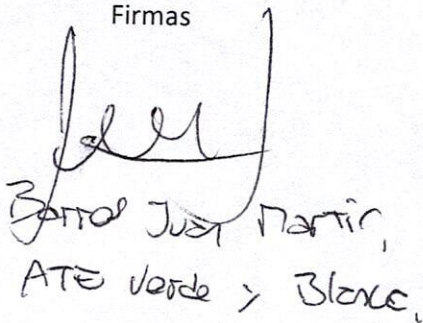 Firmas
Barros Juan Martin,
ATE Verde y Blanca,